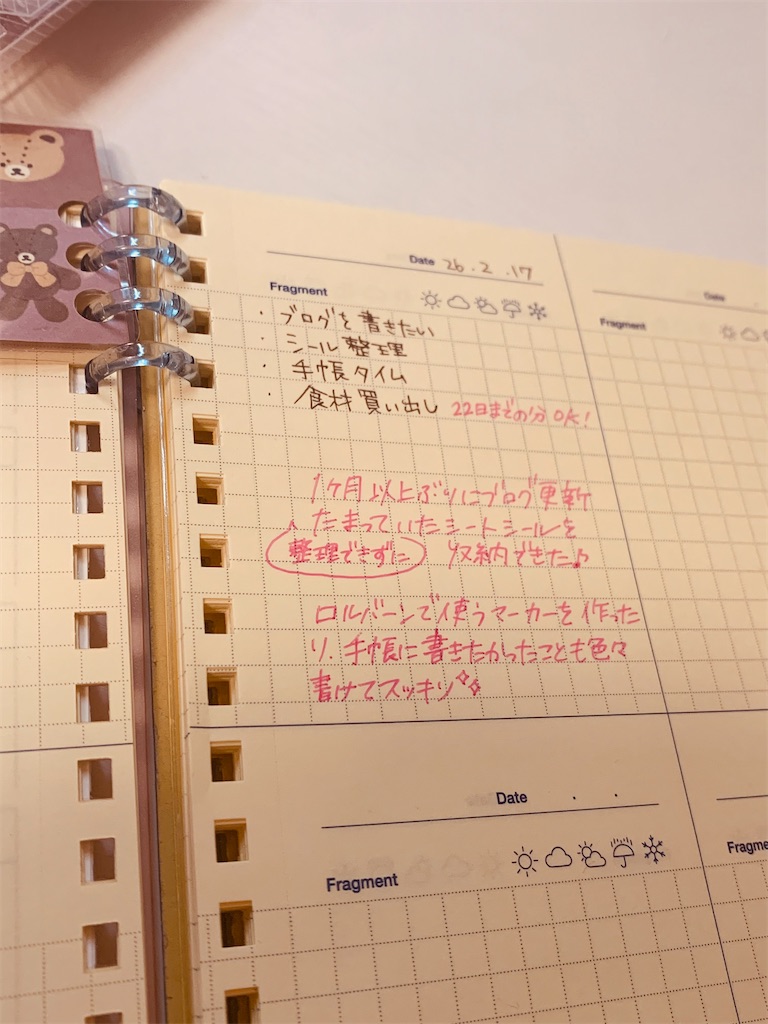 Date 26.2.17
Fragment
・ブログを書きたい
・シール整理
・手帳タイム
・食材買い出し 22日までの分OK!
1ヶ月以上ぶりにブログ更新
たまっていたシートシールを
整理できずに 収納できた♪
ロルバーンで使うマーカーを作った
り、手帳に書きたかったことも色々
書けてスッキリ
Date
Fragment
Date . .
Fragment
Fragme